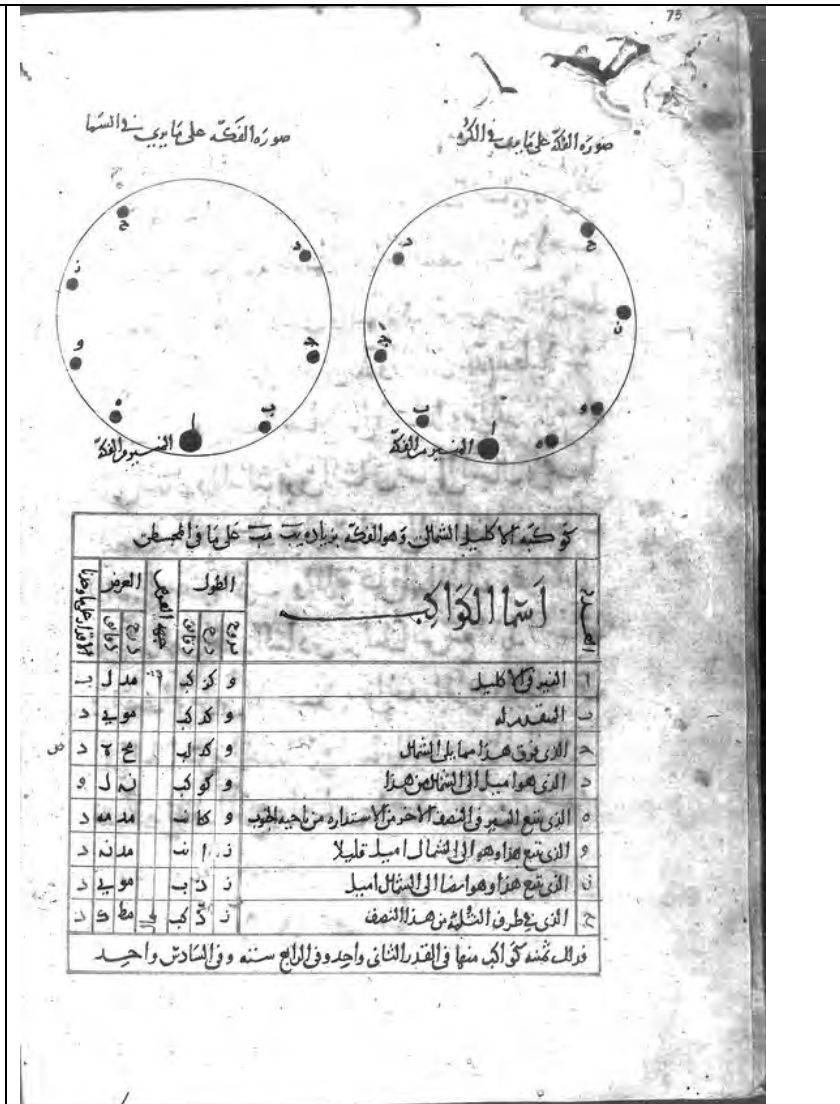 75
صوره الفكه على ما يرى في الكره
صوره الفكه على ما يرى في السما
ح
د
ز
لا
و
ب
ه
ا
النير من الفكه
ح
د
ز
و
لا
ه
ب
ا
النير من الفكه
كوكبه الاكليل الشمالى وهو الفكه بزياده يب مب على ما في المجسطى
العدد اسما الكواكب الطول جهه العرض العرض الاقدار على ما وجدنا
بروج درج دقايق درج دقايق
ا النير في الاكليل و كز كب مد ل ب
ب المتقدم له و كد كب مو ي د
ح الذى فوق هذا مما يلى الشمال و كد لب مح د
د الذى هو اميل الى الشمال من هذا و كو كب ن ل و
ه الذى يتبع النير في النصف الاخر من الاستداره من ناحيه الجنوب و نب مد مه د
و الذى يتبع هذا وهو الى الشمال اميل قليلا ز ا نب مد نه د
ز الذى يتبع هذا وهو ايضا الى الشمال اميل ز د ب مو ي د
ح الذى في طرف الثلمه من هذا النصف ز د كب شمال مط ك د
فذلك ثمنيه كواكب منها في القدر الثانى واحد وفي الرابع سته وفي السادس واحد